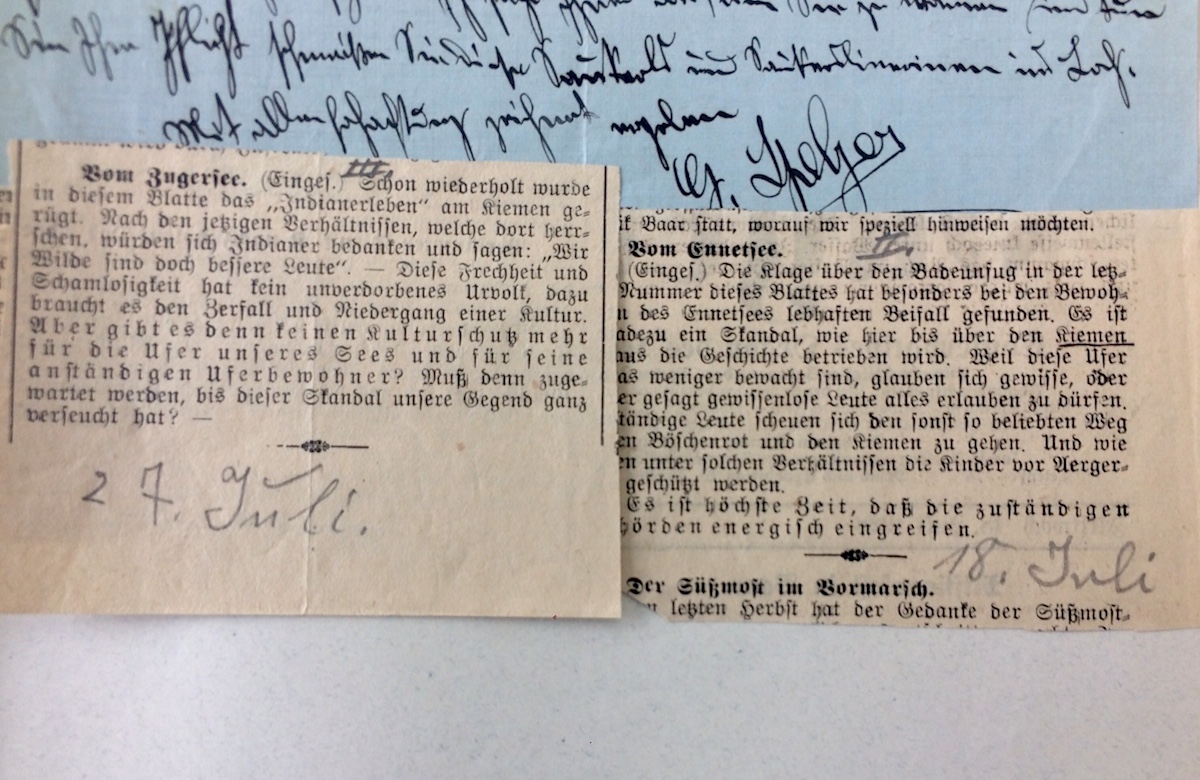 Ihre Pflicht schmeißen Sie diese Saukerls und Saukerlinerinnen ins Loch.
Mit aller Hochachtung zeichnet
G. Spelzer
Vom Zugersee. (Einges.) Schon wiederholt wurde
III.
in diesem Blatte das „Indianerleben“ am Kiemen ge-
rügt. Nach den jetzigen Verhältnissen, welche dort herr-
schen, würden sich Indianer bedanken und sagen: „Wir
Wilde sind doch bessere Leute“. — Diese Frechheit und
Schamlosigkeit hat kein unverdorbenes Urvolk, dazu
braucht es den Zerfall und Niedergang einer Kultur.
Aber gibt es denn keinen Kulturschutz mehr
für die Ufer unseres Sees und für seine
anständigen Uferbewohner? Muß denn zuge-
wartet werden, bis dieser Skandal unsere Gegend ganz
verseucht hat? —
27. Juli.
Baar statt, worauf wir speziell hinweisen möchten.
Vom Ennetsee.
II.
(Einges.) Die Klage über den Badeunfug in der letz-
Nummer dieses Blattes hat besonders bei den Bewoh-
n des Ennetsees lebhaften Beifall gefunden. Es ist
adezu ein Skandal, wie hier bis über den Kiemen
aus die Geschichte betrieben wird. Weil diese Ufer
as weniger bewacht sind, glauben sich gewisse, oder
er gesagt gewissenlose Leute alles erlauben zu dürfen.
tändige Leute scheuen sich den sonst so beliebten Weg
en Böschenrot und den Kiemen zu gehen. Und wie
en unter solchen Verhältnissen die Kinder vor Aerger-
geschützt werden.
Es ist höchste Zeit, daß die zuständigen
hörden energisch eingreifen.
18. Juli
Der Süßmost im Vormarsch.
n letzten Herbst hat der Gedanke der Süßmost-